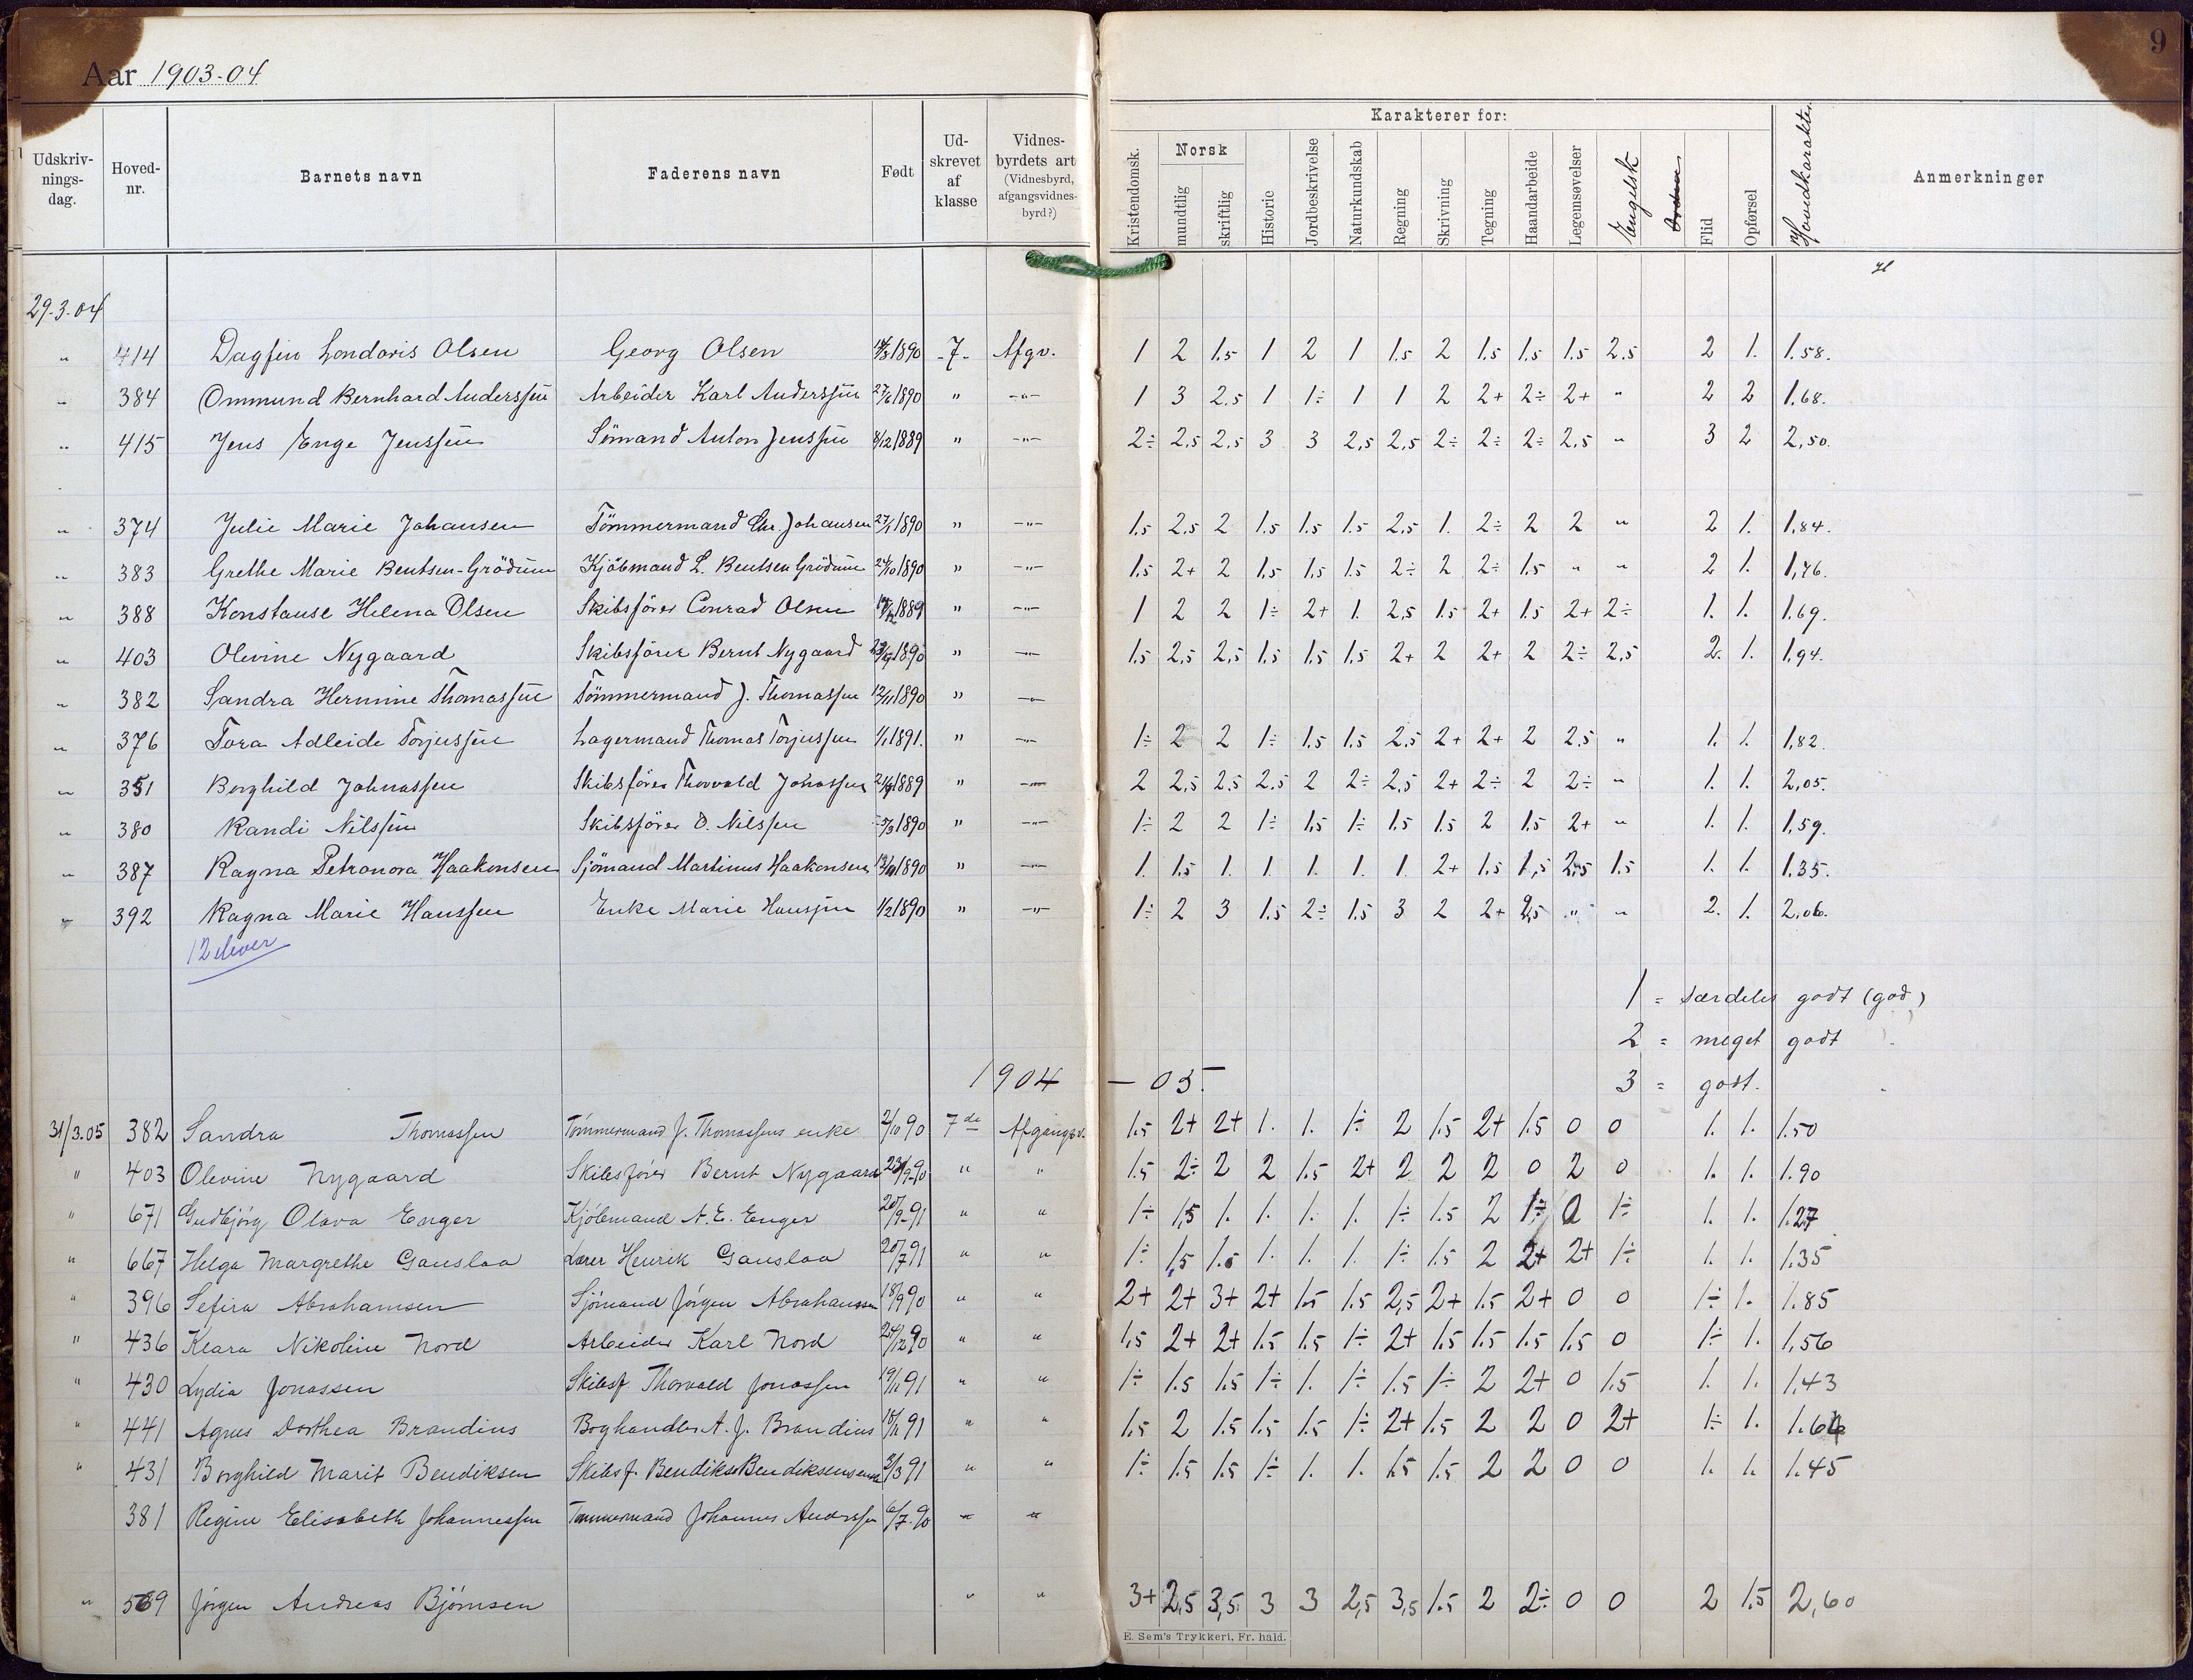 Aar 1903-04
9
Udskriv-nings-dag. Hoved-nr. Barnets navn Faderens navn Født Ud-skrevet af klasse Vidnes-byrdets art (Vidnesbyrd, afgangsvidnes-byrd?) Karakterer for: Kristendomsk. Norsk mundtlig skriftlig Historie Jordbeskrivelse Naturkundskab Regning Skrivning Tegning Haandarbeide Legemsøvelser Engelsk Orden Flid Opførsel Hovedkarakter Anmerkninger
29-3-04
" 414 Dagfin Londoris Olsen Georg Olsen 1890 -7- Afgv. 1 2 1.5 1 2 1 1.5 2 1.5 1.5 1.5 2.5 2 1. 1.58.
" 384 Ommund Bernhard Anderssen Arbeider Karl Anderssen 1890 " -"- 1 3 2.5 1 1÷ 1 1 2 2+ 2÷ 2+ " 2 2 1.68.
" 415 Jens Enge Jenssen Sömand Anton Jenssen 8/12 1889 " -"- 2÷ 2.5 2.5 3 3 2,5 2,5 2÷ 2÷ 2÷ 2,5 " 3 2 2,50.
" 374 Julie Marie Johansen Tömmermand Chr. Johansen 27/1 1890 " -"- 1.5 2.5 2 1.5 1.5 1.5 2.5 1. 2÷ 2 2 " 2 1. 1,84.
" 383 Grethe Marie Bentsen-Grödum Kjöbmand L. Bentsen Grödum 24/10 1890 " -"- 1.5 2+ 2 1.5 1.5 1.5 2÷ 2 2÷ 1.5 " " 2 1. 1,76.
" 388 Konstanse Helena Olsen Skibsförer Conrad Olsen 1889 " -"- 1 2 2 1÷ 2+ 1. 2,5 1.5 2+ 1.5 2+ 2÷ 1. 1. 1.69.
" 403 Olevine Nygaard Skibsförer Bernt Nygaard 23/9 1890 " -"- 1.5 2,5 2,5 1.5 1.5 1.5 2+ 2 2+ 2 2÷ 2,5 2. 1. 1,94.
" 382 Sandra Hermine Thomassen Tömmermand J. Thomassen 12/11 1890 " -"-
" 376 Tora Adleide Torjussen Lagermand Thomas Torjussen 1/1 1891. " -"- 1÷ 2 2 1÷ 1,5 1.5 2.5 2+ 2+ 2 2.5 " 1. 1. 1,82.
" 351 Borghild Johnassen Skibsförer Thorvald Jonassen 1889 " -"- 2 2,5 2.5 2.5 2 2÷ 2,5 2+ 2÷ 2 2÷ " 1. 1. 2,05.
" 380 Randi Nilssen Skibsförer O. Nilssen 5/3 1890 " -"- 1÷ 2 2 1÷ 1,5 1÷ 1.5 1.5 2 1.5 2+ " 1. 1. 1,59.
" 387 Ragna Petronora Haakonsen Sjömand Martinus Haakonsen 1890 " -"- 1. 1.5 1. 1. 1. 1. 1. 2+ 1.5 1,5 2,5 1.5 1. 1. 1.35.
" 392 Ragna Marie Hanssen Enke Marie Hanssen 1/2 1890 " -"- 1÷ 2 3 1.5 2÷ 1.5 3 2 2+ 2,5 " " 2. 1. 2,06.
12 elever
1 = særdeles godt (god)
2 = meget godt
1904 - 05. 3 = godt.
31/3.05 382 Sandra Thomassen Tömmermand J. Thomassens enke 2/10 90 7de Afgangsv. 1.5 2+ 2+ 1. 1. 1÷ 2 1.5 2+ 1.5 0 0 1. 1. 1.50
" 403 Olevine Nygaard Skibsfører Bernt Nygaard 23/9-90 " " 1.5 2÷ 2 2 1.5 2+ 2 2 2 0 2 0 1. 1. 1.90
" 671 Gudbjörg Olava Enger Kjöbmand A. E. Enger 20/9-91 " " 1÷ 1,5 1. 1. 1. 1. 1÷ 1.5 2 1÷ 0 1÷ 1. 1. 1.27
" 667 Helga Margrethe Gauslaa Lærer Henrik Gauslaa 20/7 91 " " 1÷ 1,5 1.5 1. 1. 1. 1÷ 1.5 2 2+ 2+ 1÷ 1. 1. 1.35
" 396 Sefira Abrahamsen Sjömand Jörgen Abrahamsen 18/9 90 " " 2+ 2+ 3+ 2+ 1.5 1.5 2,5 2+ 1.5 2+ 0 0 1÷ 1. 1.85
" 436 Klara Nikoline Nord Arbeider Karl Nord 24/12 90 " " 1,5 2+ 2+ 1.5 1.5 1÷ 2+ 1.5 1.5 1.5 1.5 0 1÷ 1. 1,56
" 430 Lydia Jonassen Skibsf. Thorvald Jonassen 91 " " 1÷ 1.5 1.5 1÷ 1. 1÷ 1.5 1÷ 2 2+ 0 1.5 1. 1. 1,43
" 441 Agnes Dorthea Brandius Boghandler A. J. Brandius 91 " " 1.5 2 1.5 1.5 1.5 1÷ 2+ 1.5 2 2 0 2+ 1÷ 1. 1.64
" 431 Borghild Marit Bendiksen Skibsf. Bendiks Bendiksens enke 3/3 91 " " 1÷ 1.5 1.5 1÷ 1. 1. 1.5 1.5 2 2 0 0 1. 1. 1.45
381 Regine Elisabeth Johannessen Tømmermand Johannes Anderssen 6/7-90 " "
" 569 Jörgen Andreas Bjömsen " " 3+ 2,5 3,5 3 3 2,5 3,5 1.5 2 2÷ 0 0 2 1.5 2,60
E. Sem's Trykkeri, Fr. hald.